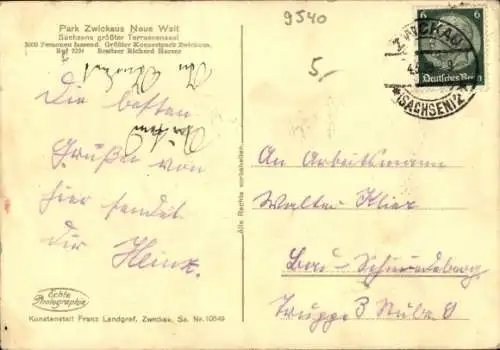 Park Zwickaus Neue Welt
Sachsens größter Terrassensaal
3000 Personen fassend. Größter Konzertpark Zwickaus.
Ruf 5254 Besitzer Richard Herzer
9540
5,-
ZWICKAU
(SACHSEN) 2
6
Deutsches Reich
Die besten
Grüße von
hier sendet
dir Heinz.
An Arbeitsmann
Walter Klier
Truppe 3 Stube 9
Alle Rechte vorbehalten.
Echte
Photographie
Kunstanstalt Franz Landgraf, Zwickau, Sa. Nr. 10849